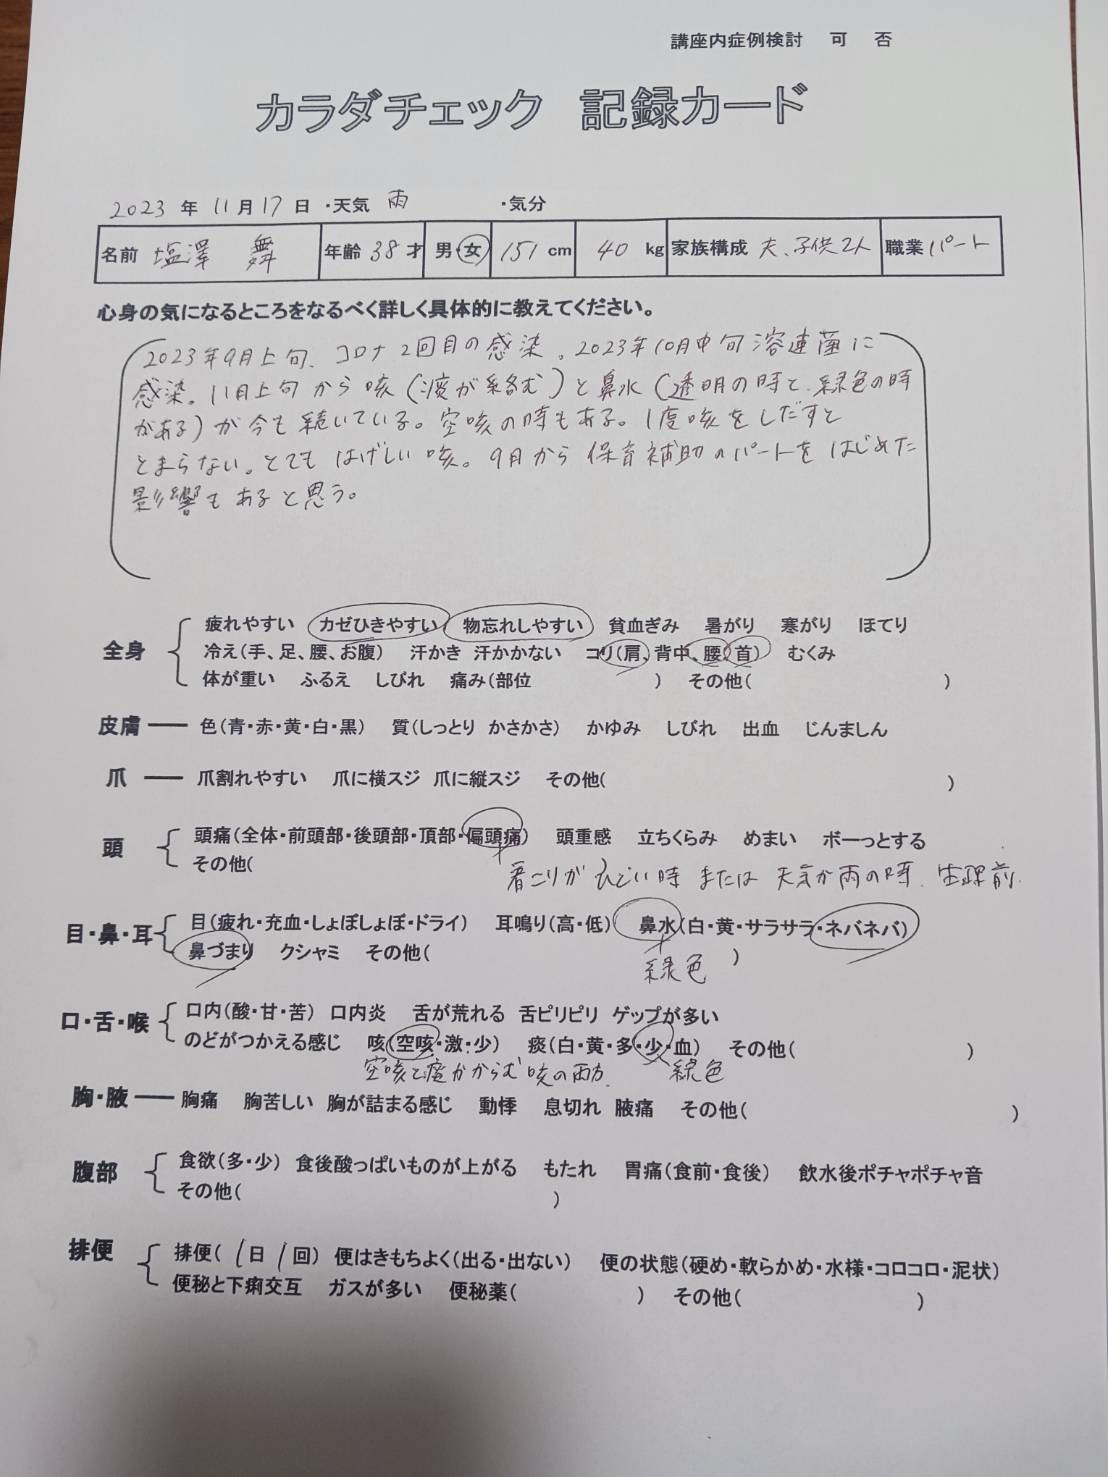 講座内症例検討 可 否
カラダチェック 記録カード
2023 年 11月 17 日 ・天気 雨 ・気分
名前 塩澤 舞 年齢 38 才 男・女 151 cm 40 kg 家族構成 夫、子供2人 職業 パート
心身の気になるところをなるべく詳しく具体的に教えてください。
2023年9月上旬、コロナ2回目の感染。2023年10月中旬溶連菌に
感染。11月上旬から咳(痰が絡む)と鼻水(透明の時と、緑色の時
がある)が今も続いている。空咳の時もある。1度咳をしだすと
とまらない。とてもはげしい咳。9月から保育補助のパートをはじめた
影響もあると思う。
全身 疲れやすい カゼひきやすい 物忘れしやすい 貧血ぎみ 暑がり 寒がり ほてり
冷え(手、足、腰、お腹) 汗かき 汗かかない コリ(肩、背中、腰、首) むくみ
体が重い ふるえ しびれ 痛み(部位 ) その他( )
皮膚 色(青・赤・黄・白・黒) 質(しっとり かさかさ) かゆみ しびれ 出血 じんましん
爪 爪割れやすい 爪に横スジ 爪に縦スジ その他( )
頭 頭痛(全体・前頭部・後頭部・頂部・偏頭痛) 頭重感 立ちくらみ めまい ボーっとする
その他(
肩こりがひどい時 または 天気が雨の時、生理前、
目・鼻・耳 目(疲れ・充血・しょぼしょぼ・ドライ) 耳鳴り(高・低) 鼻水(白・黄・サラサラ・ネバネバ)
鼻づまり クシャミ その他( )
緑色
口・舌・喉 口内(酸・甘・苦) 口内炎 舌が荒れる 舌ピリピリ ゲップが多い
のどがつかえる感じ 咳(空咳・激・少) 痰(白・黄・多・少・血) その他( )
空咳と痰がからむ咳の両方、 緑色
胸・腋 胸痛 胸苦しい 胸が詰まる感じ 動悸 息切れ 腋痛 その他( )
腹部 食欲(多・少) 食後酸っぱいものが上がる もたれ 胃痛(食前・食後) 飲水後ポチャポチャ音
その他( )
排便 排便( 1日 1回) 便はきもちよく(出る・出ない) 便の状態(硬め・軟らかめ・水様・コロコロ・泥状)
便秘と下痢交互 ガスが多い 便秘薬( ) その他( )